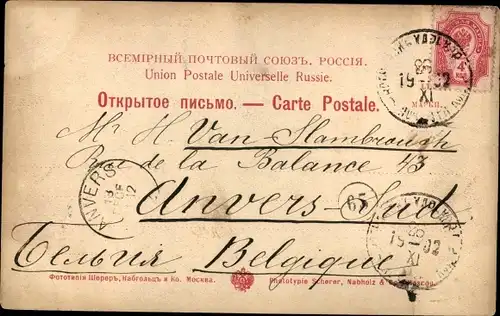 ВСЕМІРНЫЙ ПОЧТОВЫЙ СОЮЗЪ. РОССІЯ.
Union Postale Universelle Russie.
Открытое письмо. — Carte Postale.
МАРКИ.
19 02
XI
Mr H. Van Stambrouch
Rue de la Balance 43
Anvers-Sud
ANVERS
65
19 02
XI
Бельгия Belgique
Фототипія Шереръ, Набгольцъ и Ко. Москва.
Phototypie Scherer, Nabholz &